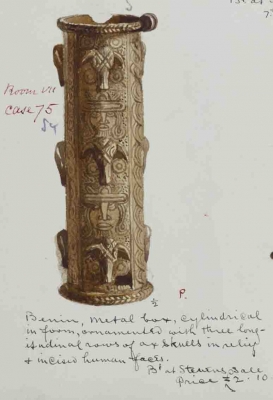 Room VII
case 75
84
P.
Benin, metal box, cylindrical
in form, ornamented with three long-
itudinal rows of ox skulls in relief
& incised human faces.
Bt at Stevens, Sale
Price £2.10